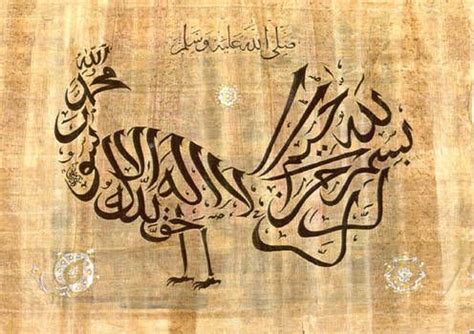 صلى الله عليه وسلم
بسم الله الرحمن الرحيم
لا اله الا الله حق
محمد رسول الله